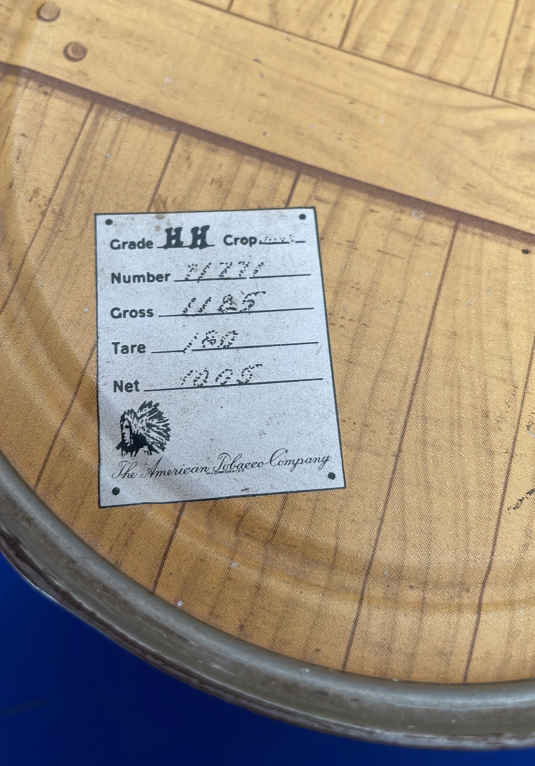 Grade HH Crop
Number 71771
Gross 1185
Tare 180
Net 1005
The American Tobacco Company